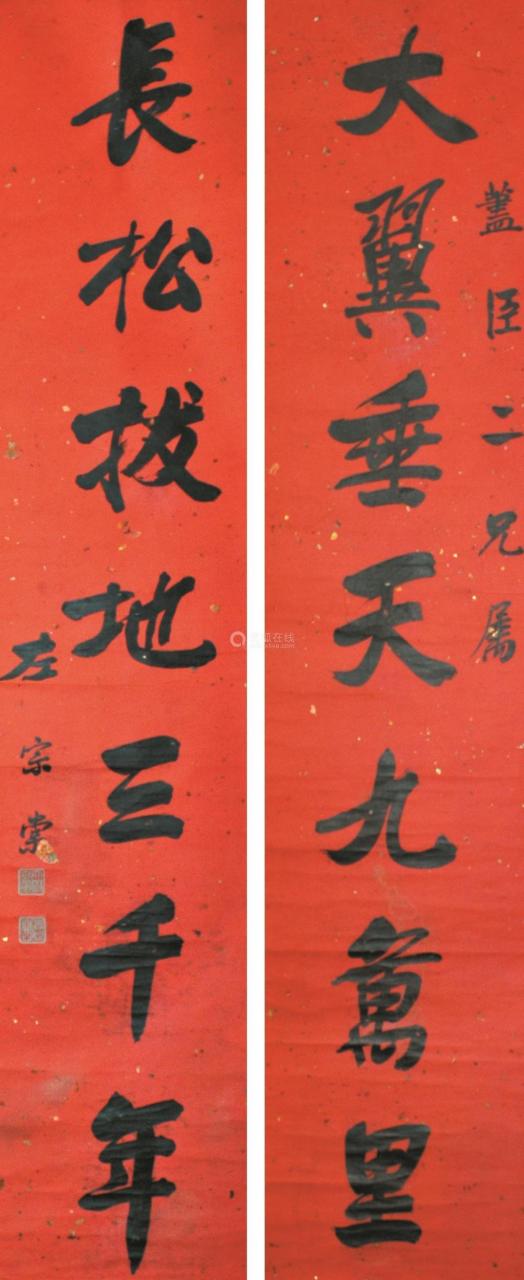 蓋臣二兄属
大翼垂天九萬里
長松拔地三千年
左宗棠